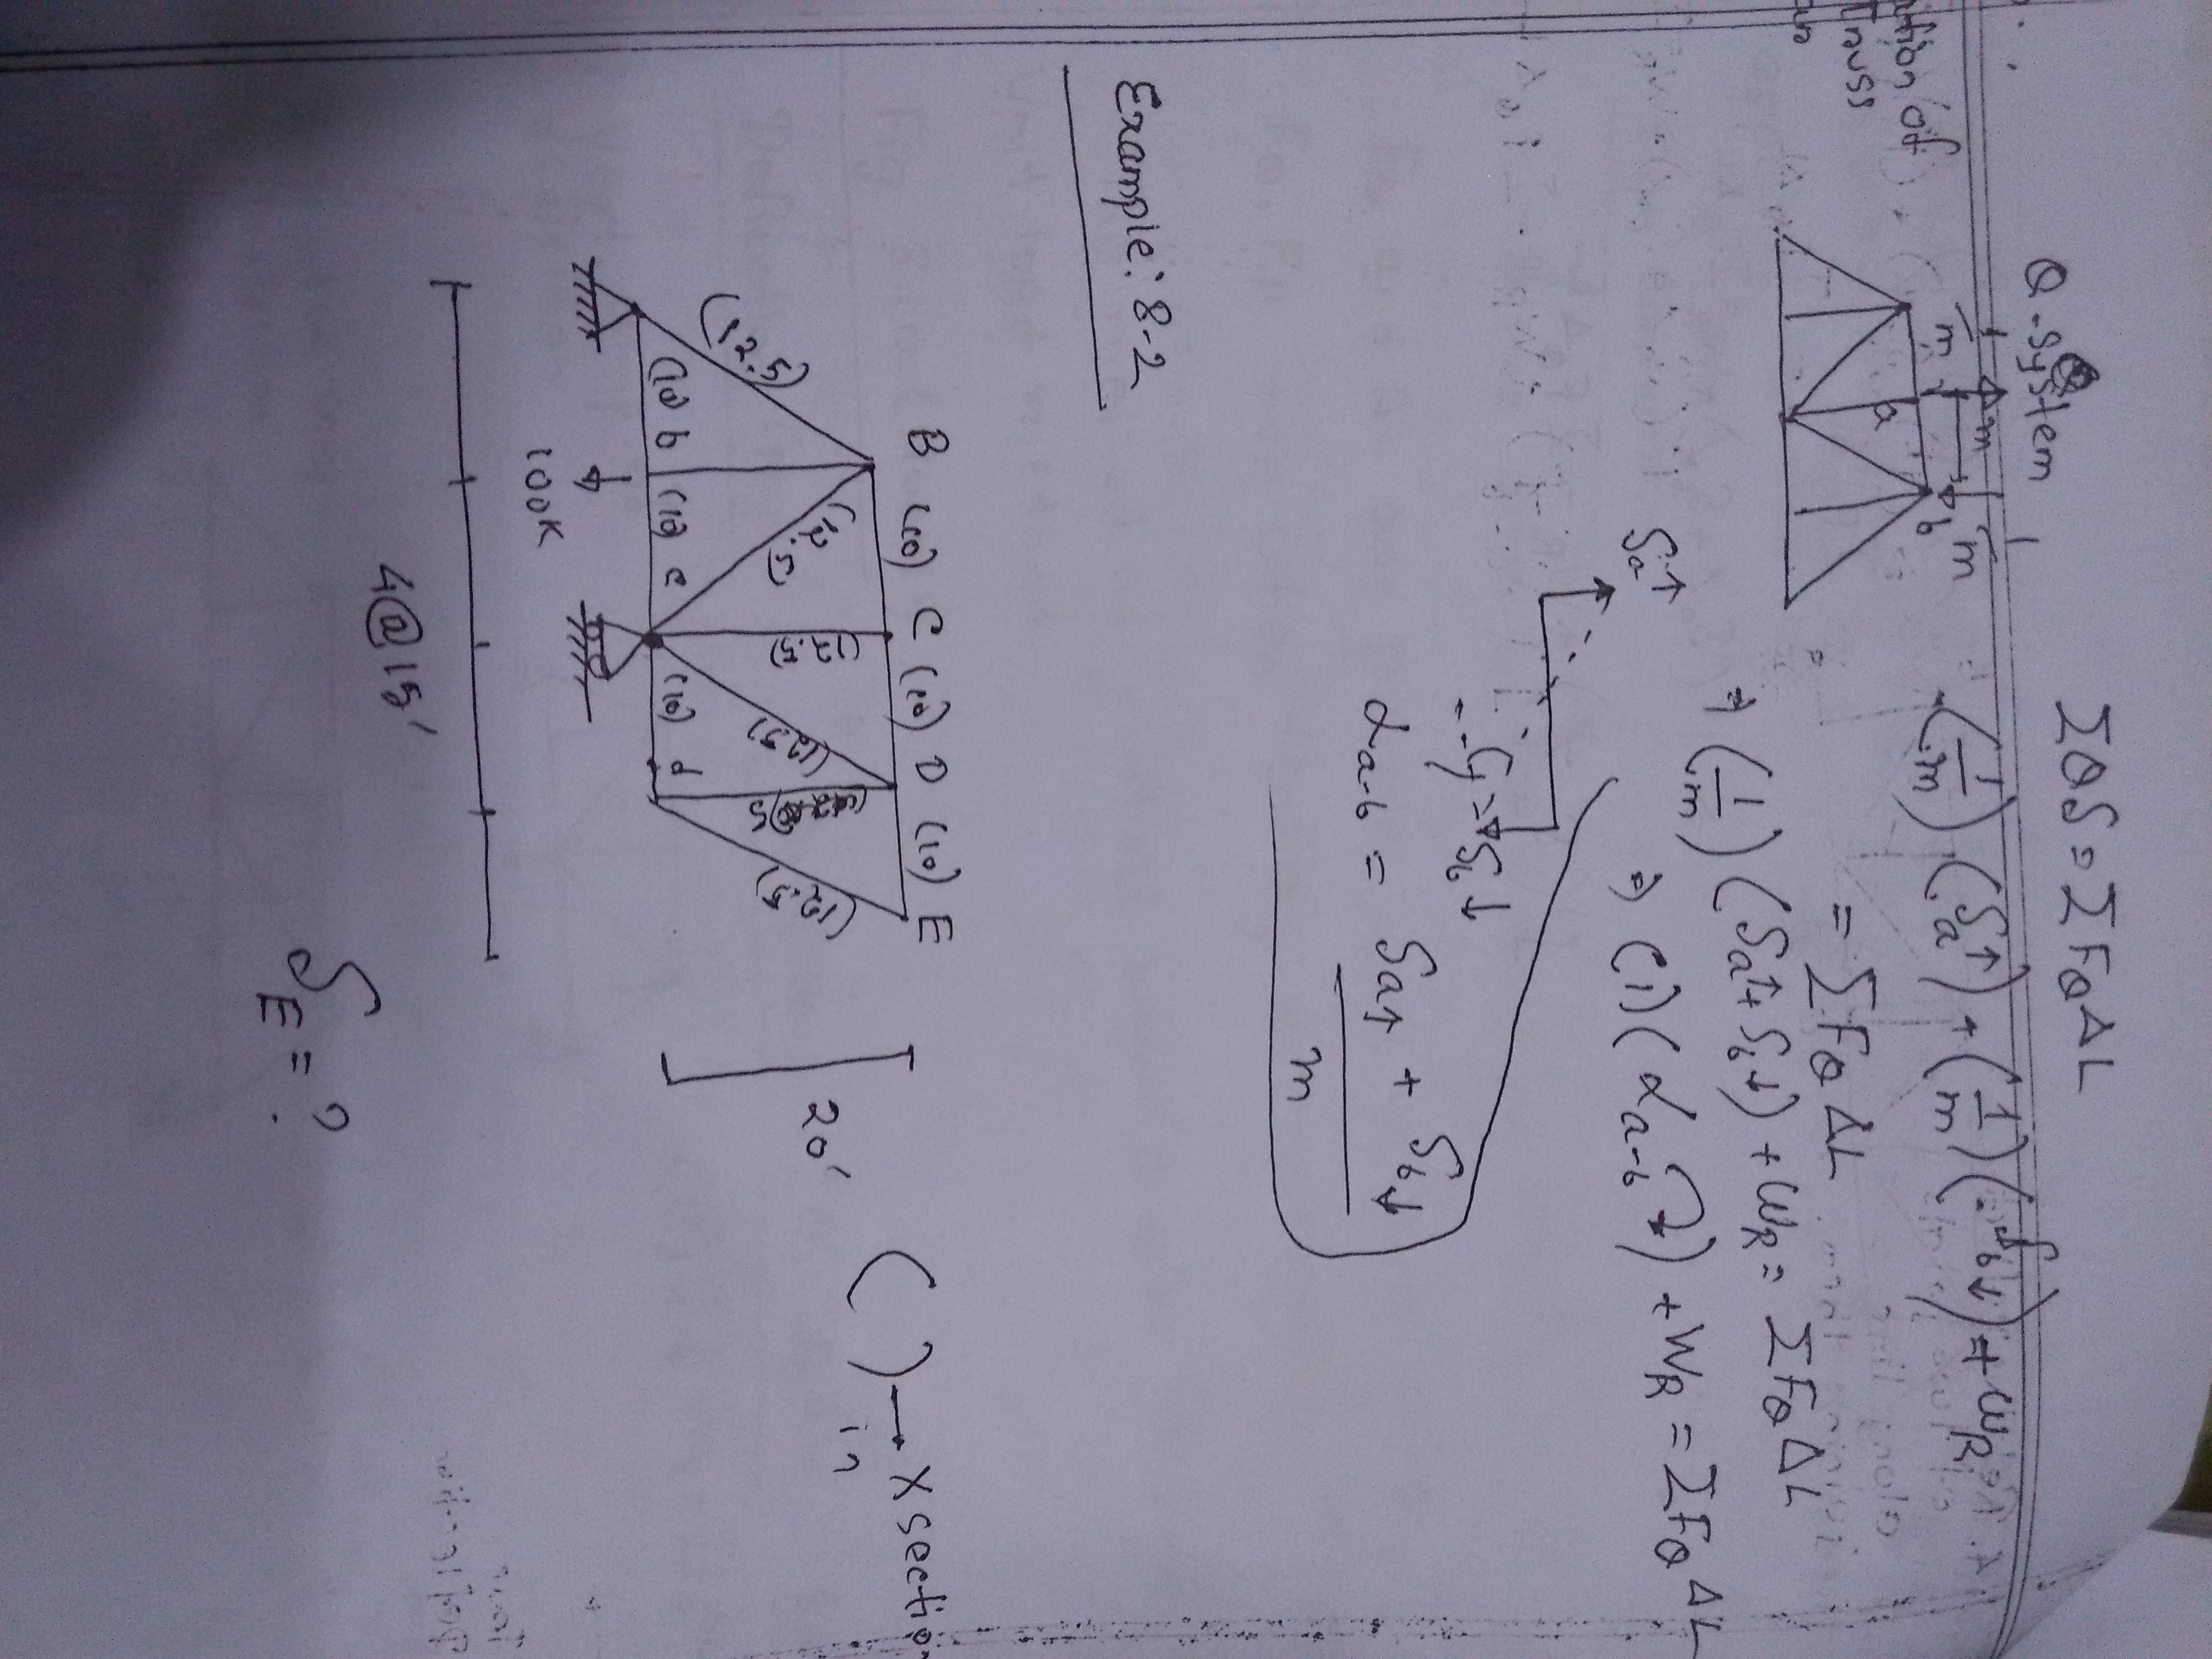 Truss
Q-system
m
m
m
a
b
ΣQδ = ΣF_QΔL
(1/m)(δa↑) + (1/m)(δb↓) + W_R
= ΣF_QΔL
⇒ (1/m)(δa↑+δb↓) + W_R = ΣF_QΔL
⇒ (1)(αa-b) + W_R = ΣF_QΔL
δa↑
δb↓
αa-b = δa↑ + δb↓
m
Example: 8-2
B (10) C (10) D (10) E
(12.5) (12.5) (12.5) (12.5) (12.5)
(10) b (10) c (10) d
100K
4@15'
20'
( ) → X section
in
δE = ?